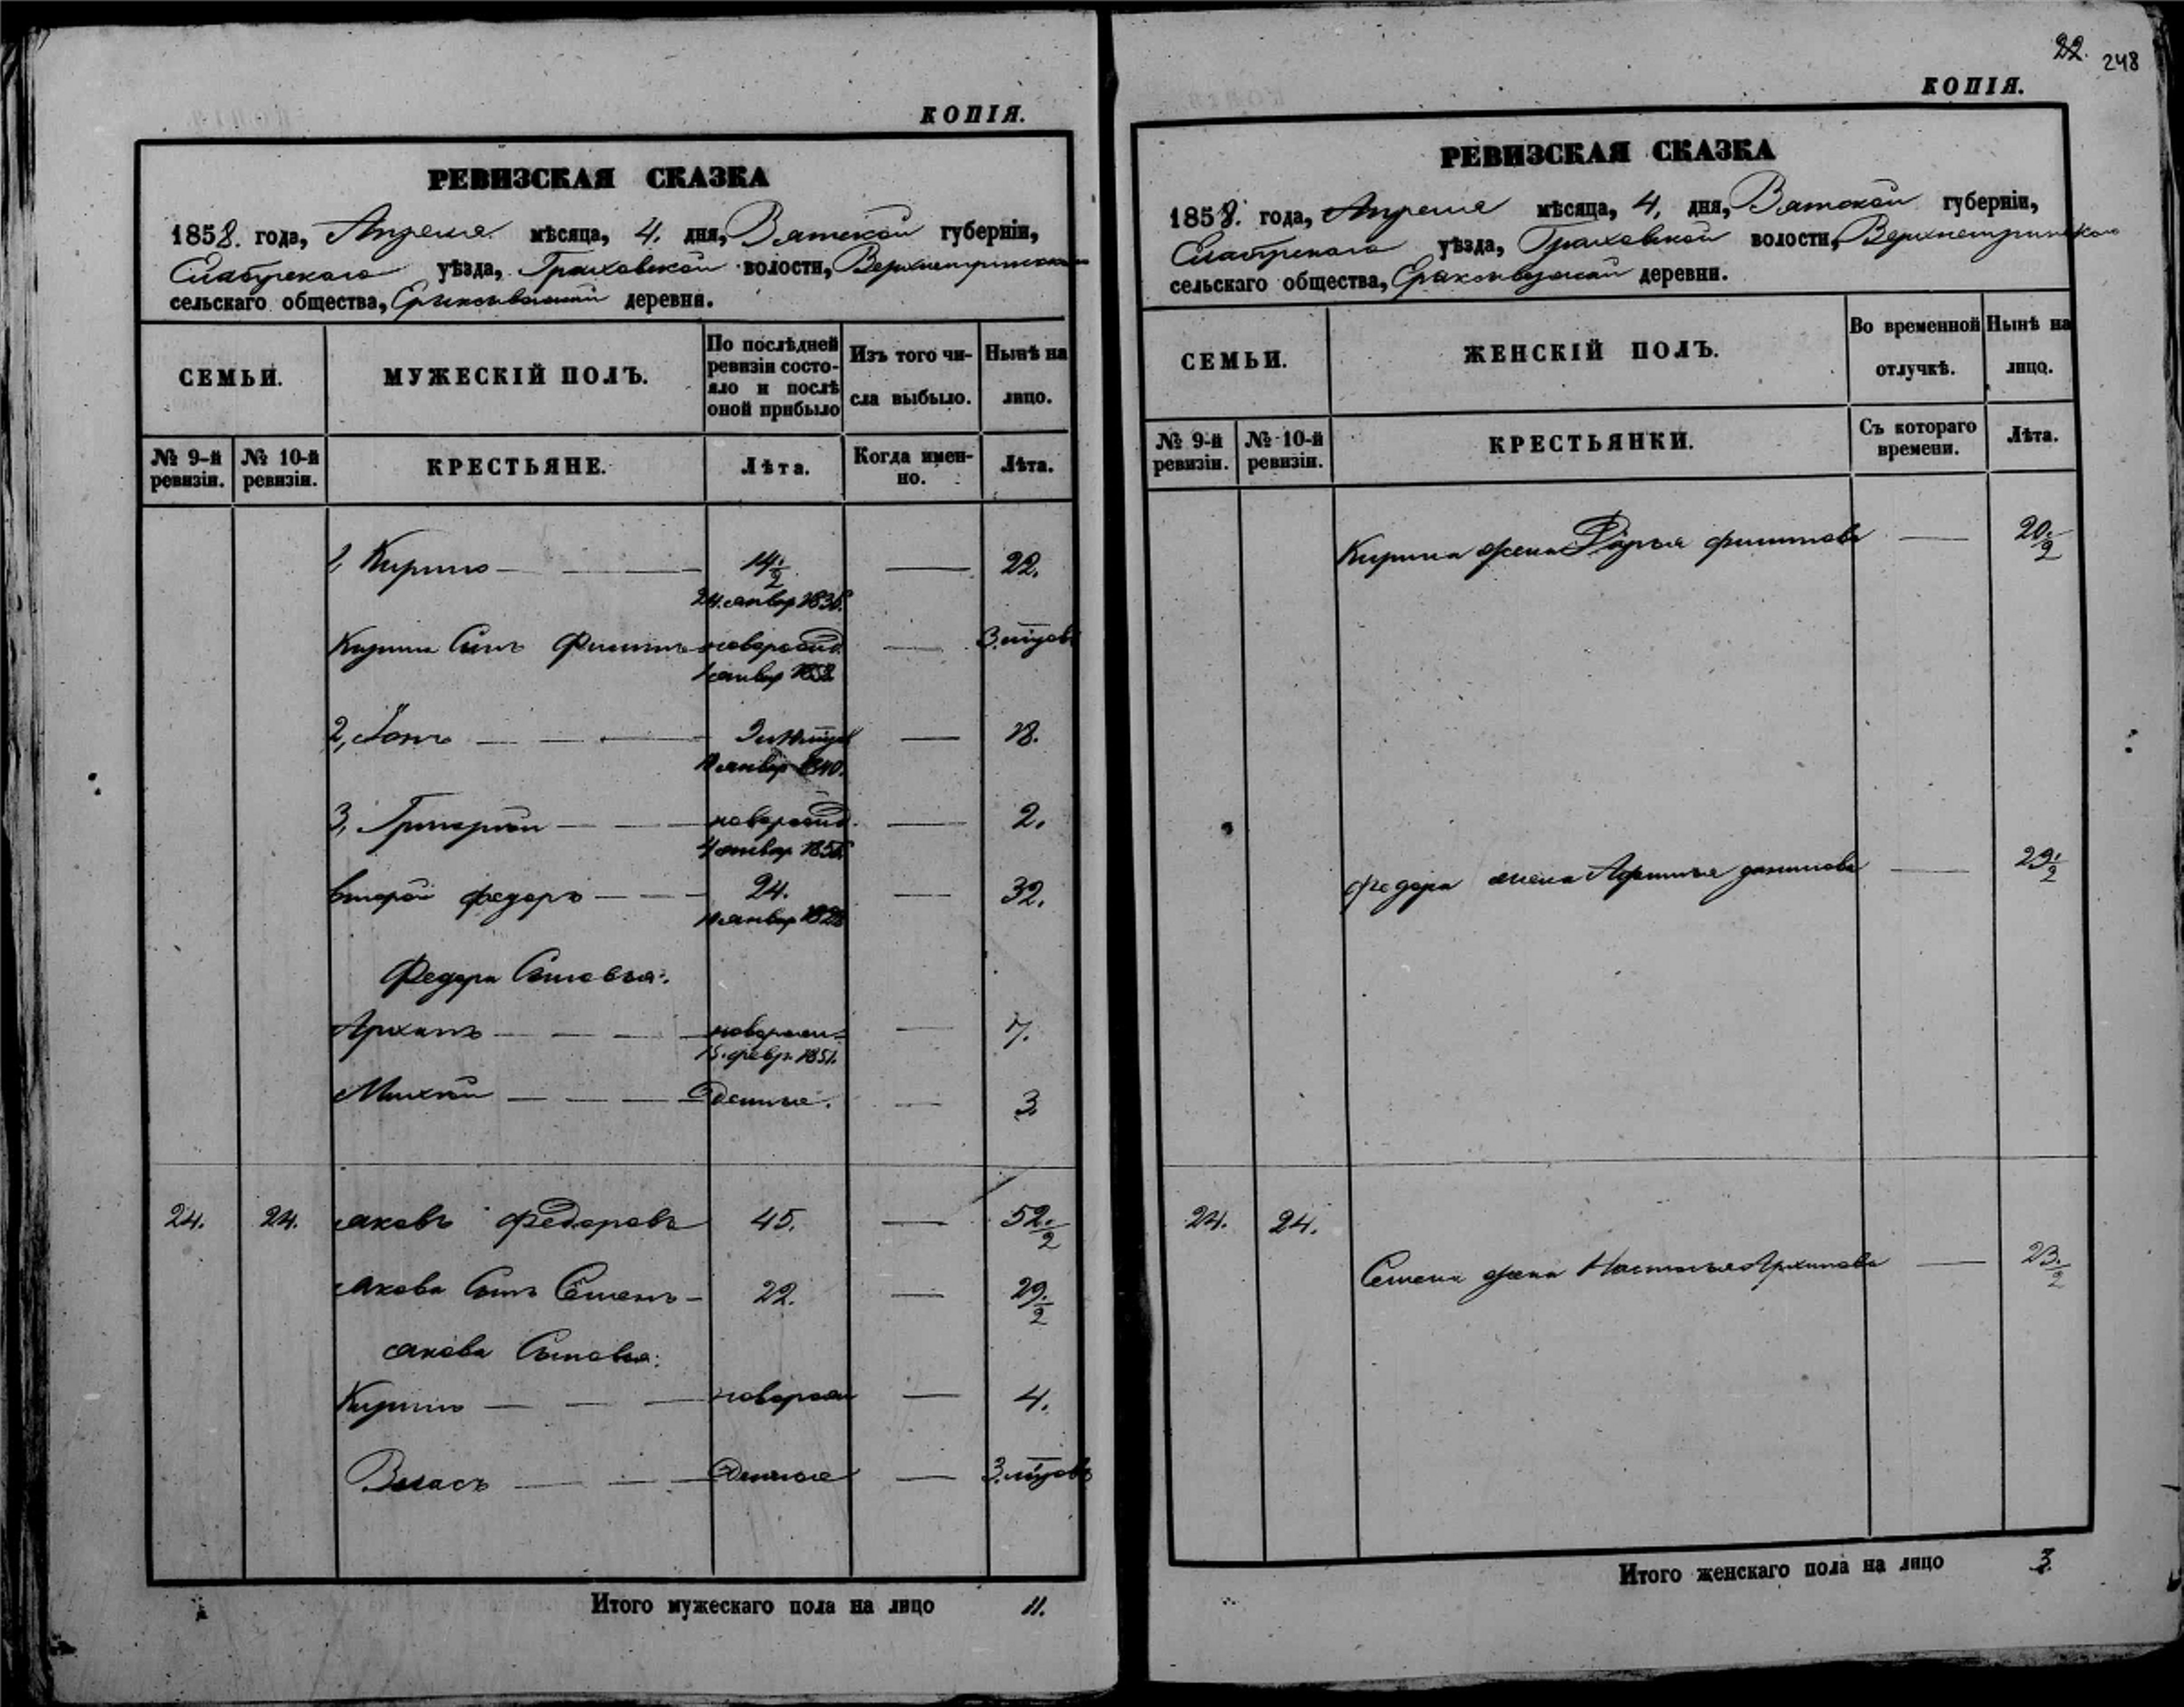 КОПІЯ.
РЕВИЗСКАЯ СКАЗКА
1858. года, Апреля мѣсяца, 4. дня, Вятской губерніи,
Елабугскаго уѣзда, Граховской волости,
сельскаго общества, деревни.
СЕМЬИ.
МУЖЕСКІЙ ПОЛЪ.
По послѣдней ревизіи состояло и послѣ оной прибыло
Изъ того числа выбыло.
Нынѣ на лицо.
№ 9-й ревизіи.
№ 10-й ревизіи.
КРЕСТЬЯНЕ.
Лѣта.
Когда именно.
Лѣта.
1, Кирило — 14 1/2 — 22.
24. январ
Кирила Сынъ Филипъ новорожд — 3. мѣсяцов
1 январ 1858
2, — 18.
январ 1840.
3, Григорій — новорожд — 2.
январ
второй федоръ — 24. — 32.
январ
Федора Сыновья:
Архипъ — новорожд — 7.
15. февр. 1851.
— 3
24. 24. Яковъ Федоровъ 45. — 52 1/2
Якова Сынъ Семенъ — 22. — 29 1/2
Якова Сыновья:
Кирило — новорож — 4.
Власъ — 3. мѣсяцовъ
Итого мужескаго пола на лицо 11.
22. 248
КОПІЯ.
РЕВИЗСКАЯ СКАЗКА
1858. года, Апреля мѣсяца, 4, дня, Вятской губерніи,
Елабугскаго уѣзда, Граховской волости,
сельскаго общества, деревни.
СЕМЬИ.
ЖЕНСКІЙ ПОЛЪ.
Во временной отлучкѣ.
Нынѣ на лицо.
№ 9-й ревизіи.
№ 10-й ревизіи.
КРЕСТЬЯНКИ.
Съ котораго времени.
Лѣта.
Кирила жена Дарья филипова — 20 1/2
федора жена данилова — 29 1/2
24. 24.
Семена жена Настасья Архипова — 23 1/2
Итого женскаго пола на лицо 3.